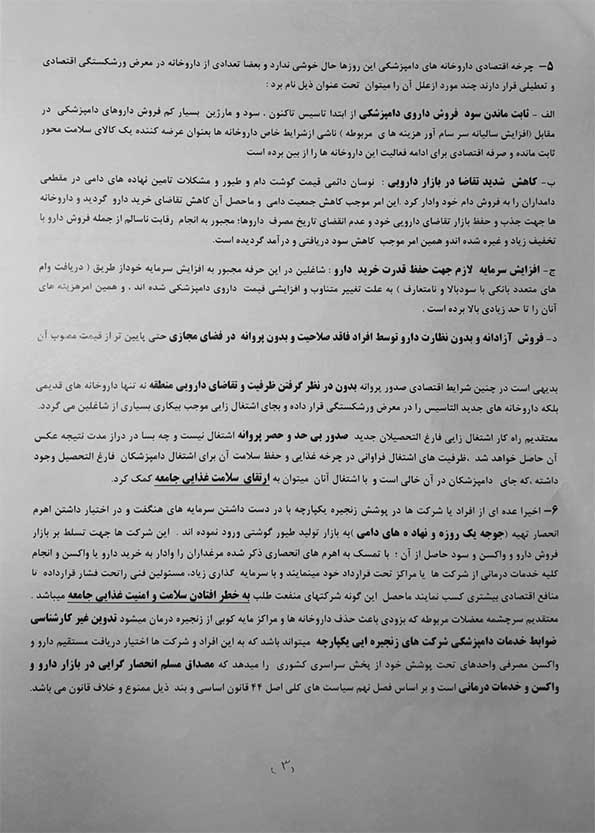 ۵– چرخه اقتصادی داروخانه های دامپزشکی این روزها حال خوشی ندارد و بعضا تعدادی از داروخانه در معرض ورشکستگی اقتصادی
و تعطیلی قرار دارند چند مورد ازعلل آن را میتوان تحت عنوان ذیل نام برد :
الف – ثابت ماندن سود فروش داروی دامپزشکی از ابتدا تاسیس تاکنون ، سود و مارژین بسیار کم فروش داروهای دامپزشکی در
مقابل (افزایش سالیانه سر سام آور هزینه ها ی مربوطه ) ناشی ازشرایط خاص داروخانه ها بعنوان عرضه کننده یک کالای سلامت محور
ثابت مانده و صرفه اقتصادی برای ادامه فعالیت این داروخانه ها را از بین برده است
ب– کاهش شدید تقاضا در بازار دارویی : نوسان دائمی قیمت گوشت دام و طیور و مشکلات تامین نهاده های دامی در مقطعی
دامداران را به فروش دام خود وادار کرد .این امر موجب کاهش جمعیت دامی و ماحصل آن کاهش تقاضای خرید دارو گردید و داروخانه
ها جهت جذب و حفظ بازار تقاضای دارویی خود و عدم انقضای تاریخ مصرف داروها؛ مجبور به انجام رقابت ناسالم از جمله فروش دارو با
تخفیف زیاد و غیره شده اندو همین امر موجب کاهش سود دریافتی و درآمد گردیده است.
ج– افزایش سرمایه لازم جهت حفظ قدرت خرید دارو : شاغلین در این حرفه مجبور به افزایش سرمایه خوداز طریق ( دریافت وام
های متعدد بانکی با سودبالا و نامتعارف ) به علت تغییر متناوب و افزایشی قیمت داروی دامپزشکی شده اند ، و همین امرهزینه های
آنان را تا حد زیادی بالا برده است .
د– فروش آزادانه و بدون نظارت دارو توسط افراد فاقد صلاحیت و بدون پروانه در فضای مجازی حتی پایین تر از قیمت مصوب آن
بدیهی است در چنین شرایط اقتصادی صدور پروانه بدون در نظر گرفتن ظرفیت و تقاضای دارویی منطقه نه تنها داروخانه های قدیمی
بلکه داروخانه های جدید التاسیس را در معرض ورشکستگی قرار داده و بجای اشتغال زایی موجب بیکاری بسیاری از شاغلین می گردد.
معتقدیم راه کار اشتغال زایی فارغ التحصیلان جدید صدور بی حد و حصر پروانه اشتغال نیست و چه بسا در دراز مدت نتیجه عکس
آن حاصل خواهد شد ،ظرفیت های اشتغال فراوانی در چرخه غذایی و حفظ سلامت آن برای اشتغال دامپزشکان فارغ التحصیل وجود
داشته ،که جای دامپزشکان در آن خالی است و با اشتغال آنان میتوان به ارتقای سلامت غذایی جامعه کمک کرد.
۶– اخیرا عده ای از افراد یا شرکت ها در پوشش زنجیره یکپارچه با در دست داشتن سرمایه های هنگفت و در اختیار داشتن اهرم
انحصار تهیه (جوجه یک روزه و نهاد ه های دامی )به بازار تولید طیور گوشتی ورود نموده اند . این شرکت ها جهت تسلط بر بازار
فروش دارو و واکسن و سود حاصل از آن ؛ با تمسک به اهرم های انحصاری ذکر شده مرغداران را وادار به خرید دارو یا واکسن و انجام
کلیه خدمات درمانی از شرکت ها یا مراکز تحت قرارداد خود مینمایند و با سرمایه گذاری زیاد، مسئولین فنی راتحت فشار قرارداده تا
منافع اقتصادی بیشتری کسب نمایند ماحصل این گونه شرکتهای منفعت طلب به خطر افتادن سلامت و امنیت غذایی جامعه میباشد .
معتقدیم سرچشمه معضلات مربوطه که بزودی باعث حذف داروخانه ها و مراکز مایه کوبی از زنجیره درمان میشود تدوین غیر کارشناسی
ضوابط خدمات دامپزشکی شرکت های زنجیره ایی یکپارچه میتواند باشد که به این افراد و شرکت ها اختیار دریافت مستقیم دارو و
واکسن مصرفی واحدهای تحت پوشش خود از پخش سراسری کشوری را میدهد که مصداق مسلم انحصار گرایی در بازار دارو و
واکسن و خدمات درمانی است و بر اساس فصل نهم سیاست های کلی اصل ۴۴ قانون اساسی و بند ذیل ممنوع و خلاف قانون می باشد.
(۳)